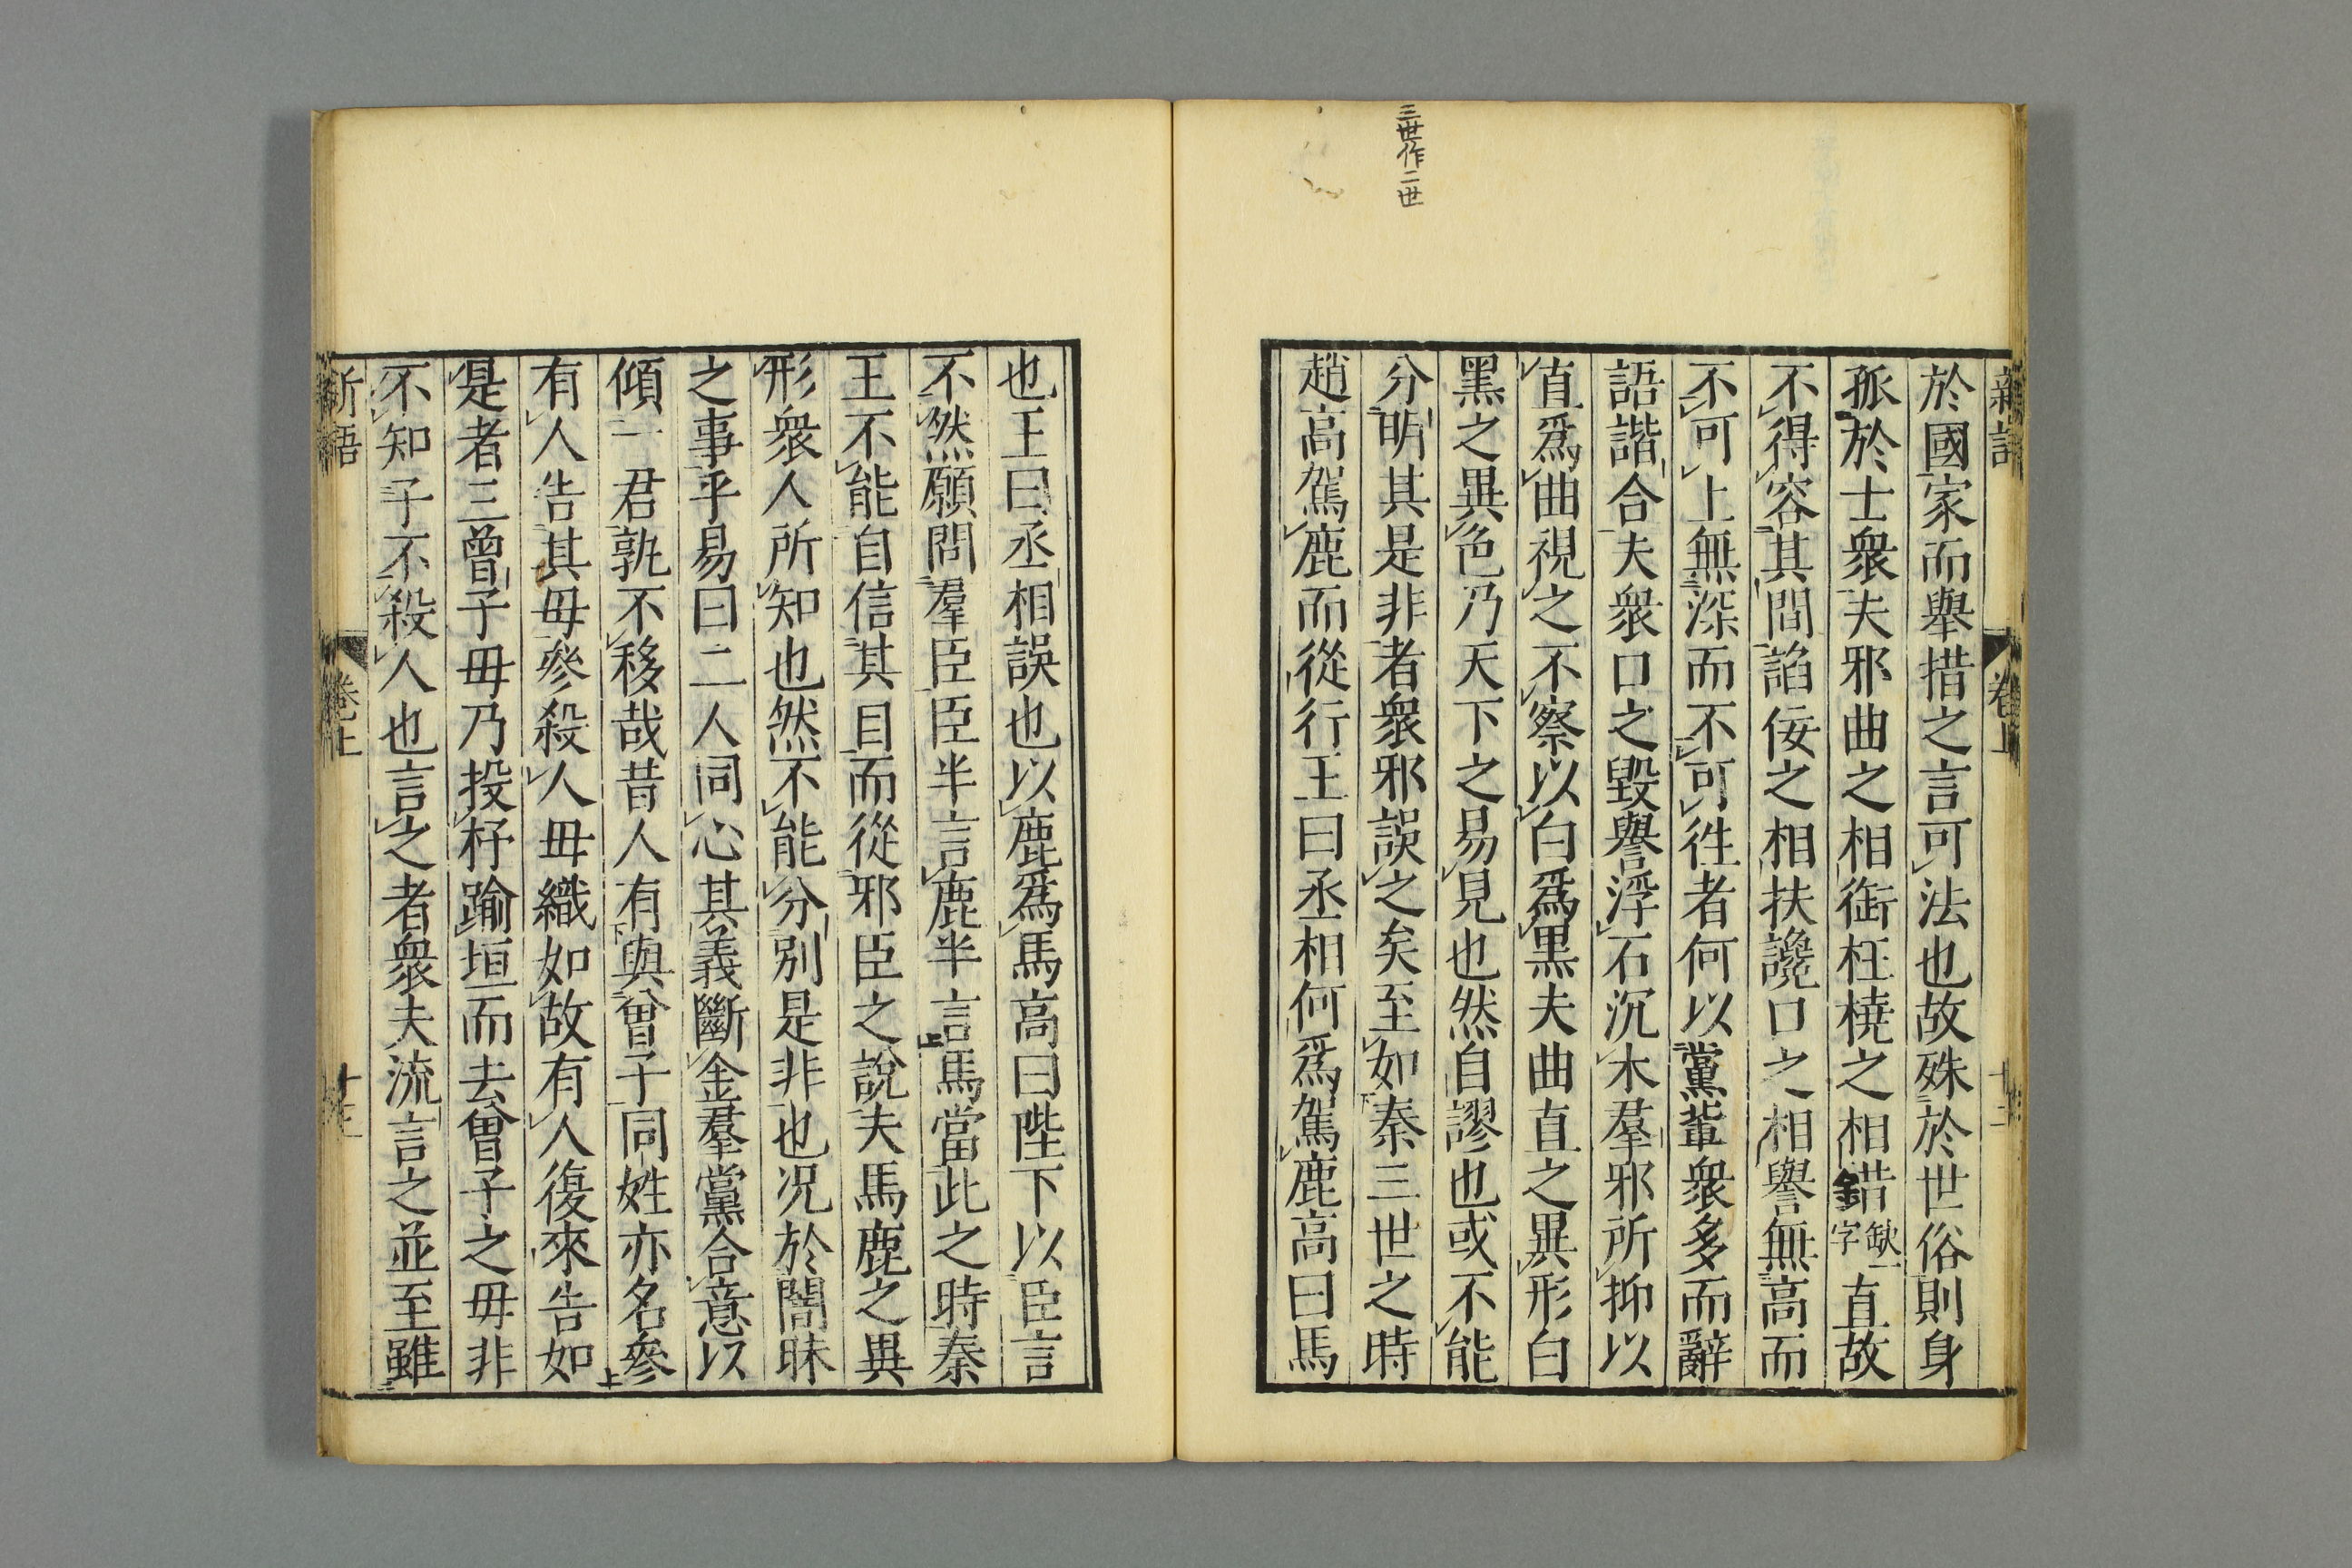 三世作二世
新語
卷上
十二
於國家而舉措之言可法也故殊於世俗則身
孤於士衆夫邪曲之相銜枉橈之相錯缺一字直故
不得容其間諂佞之相扶讒口之相譽無高而
不可上無深而不可往者何以黨輩衆多而辭
語諧合夫衆口之毀譽浮石沉木羣邪所抑以
直爲曲視之不察以白爲黒夫曲直之異形白
黑之異色乃天下之易見也然自謬也或不能
分明其是非者衆邪誤之矣至如秦三世之時
趙高駕鹿而從行王曰丞相何爲駕鹿高曰馬
也王曰丞相誤也以鹿爲馬高曰陛下以臣言
不然願問羣臣臣半言鹿半言馬當此之時秦
王不能自信其目而從邪臣之說夫馬鹿之異
形衆人所知也然不能分別是非也况於闇昧
之事乎易曰二人同心其義斷金羣黨合意以
傾一君孰不移哉昔人有與曾子同姓亦名參
有人告其母參殺人母織如故有人復來告如
是者三曾子母乃投杼踰垣而去曾子之母非
不知子不殺人也言之者衆夫流言之並至雖
新語
卷上
十二